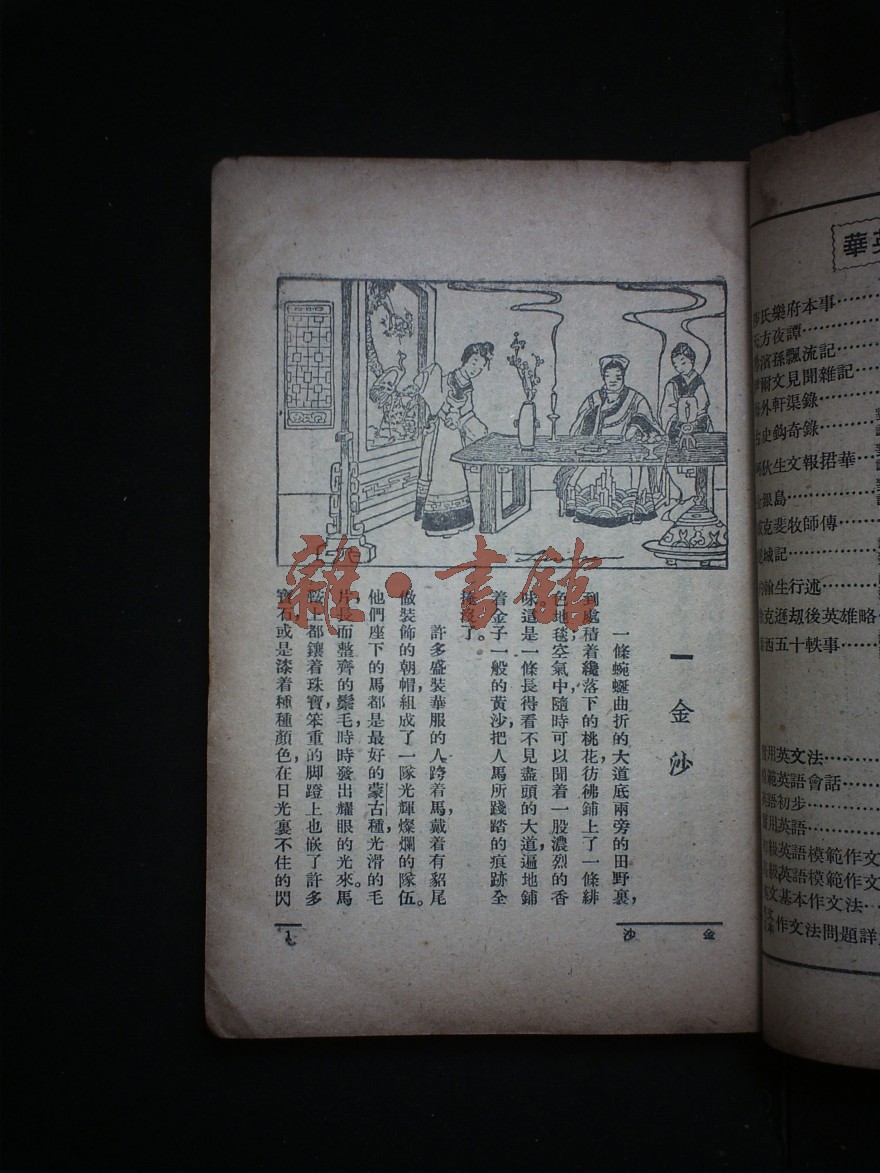 一 金沙
一條蜿蜒曲折的大道底兩旁的田野裏，
到處積着纔落下的桃花，彷彿鋪上了一條緋
色地毯，空氣中，隨時可以聞着一股濃烈的香
味，這是一條長得看不見盡頭的大道，遍地鋪
着金子一般的黃沙，把人馬所踐踏的痕跡全
沒了。
許多盛裝華服的人，跨着馬，戴着有貂尾
做裝飾的朝帽，組成了一隊光輝燦爛的隊伍。
他們座下的馬都是最好的蒙古種，光滑的毛
片，長而整齊的鬃毛，時時發出耀眼的光來。馬
鞍上都鑲着珠寶，笨重的脚蹬上也嵌了許多
寶石，或是漆着種種顏色，在日光裏不住的閃
金沙
1
雜·書館
華英
氏樂府本事
方夜譚
濱孫飄流記
爾文見聞雜記
外軒渠錄
史鈎奇錄
狄生文報捃華
銀島
克斐牧師傳
城記
翰生行述
克遜刼後英雄略
西五十軼事
實用英文法
模範英語會話
英語初步
實用英語
初級英語模範作文
高級英語模範作文
英文基本作文法
作文法問題詳